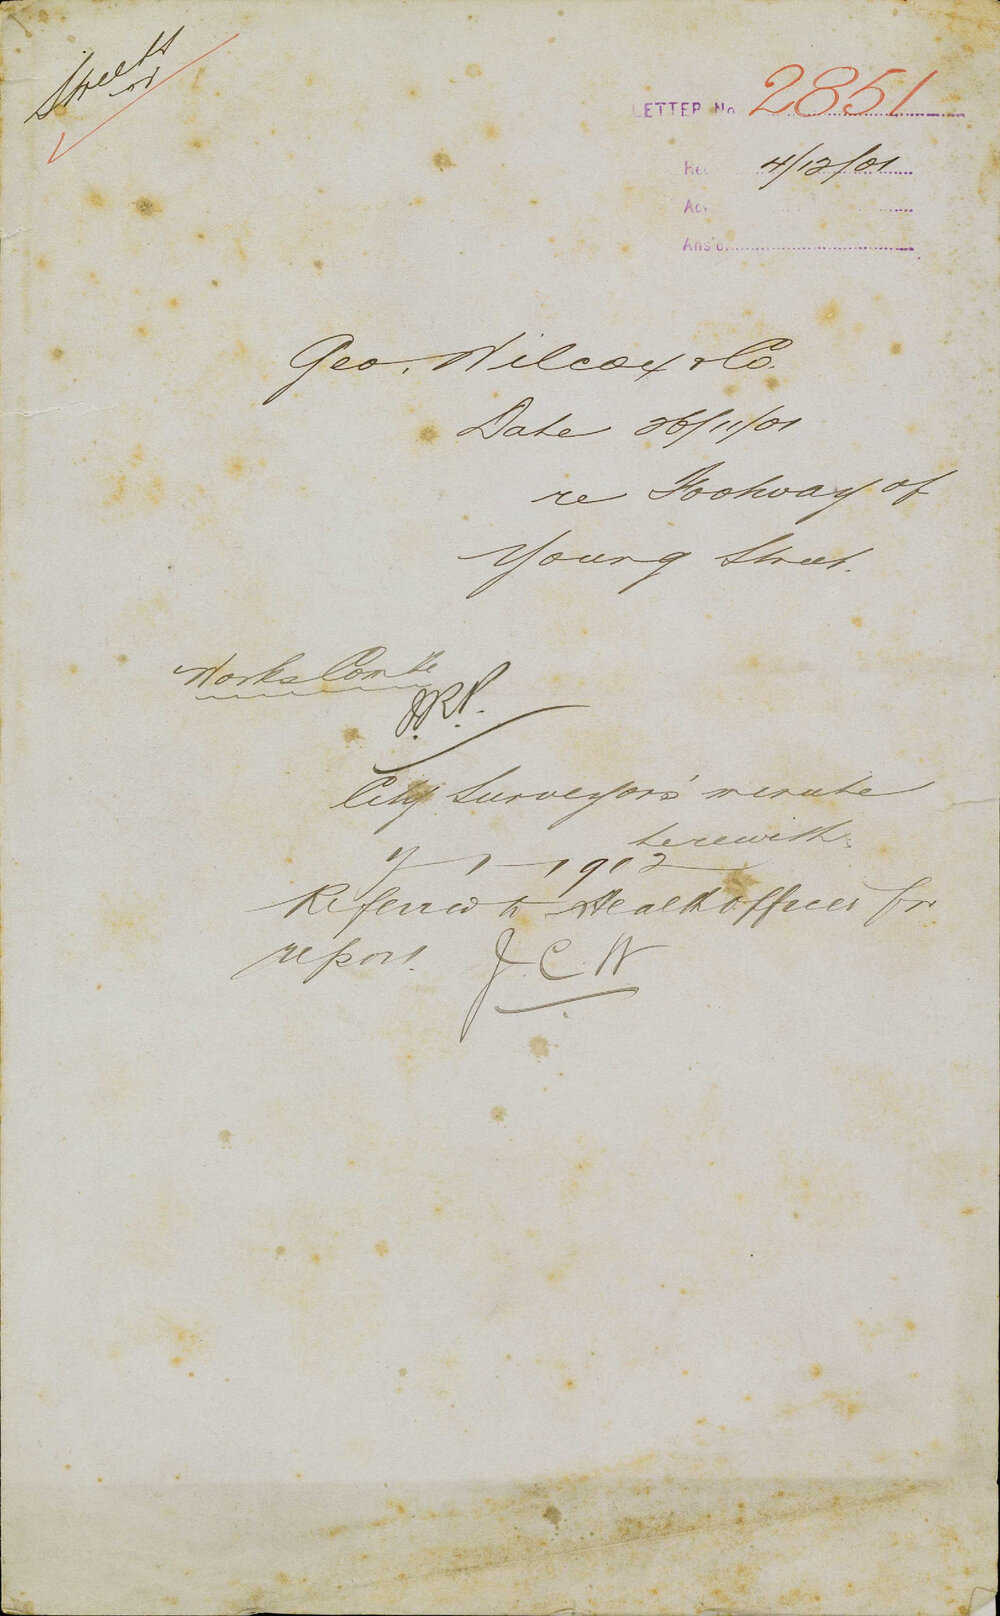 Streets
LETTER No 2851
Rec 4/12/01
Ac
Ans'd
Geo. Wilcox & Co.
Date 26/11/01
re Footway of
Young Street.
Works Comtte
City Surveyors' minute
herewith
7 - 1 - 1902
Referred to Health Officer for
report. J. C. W